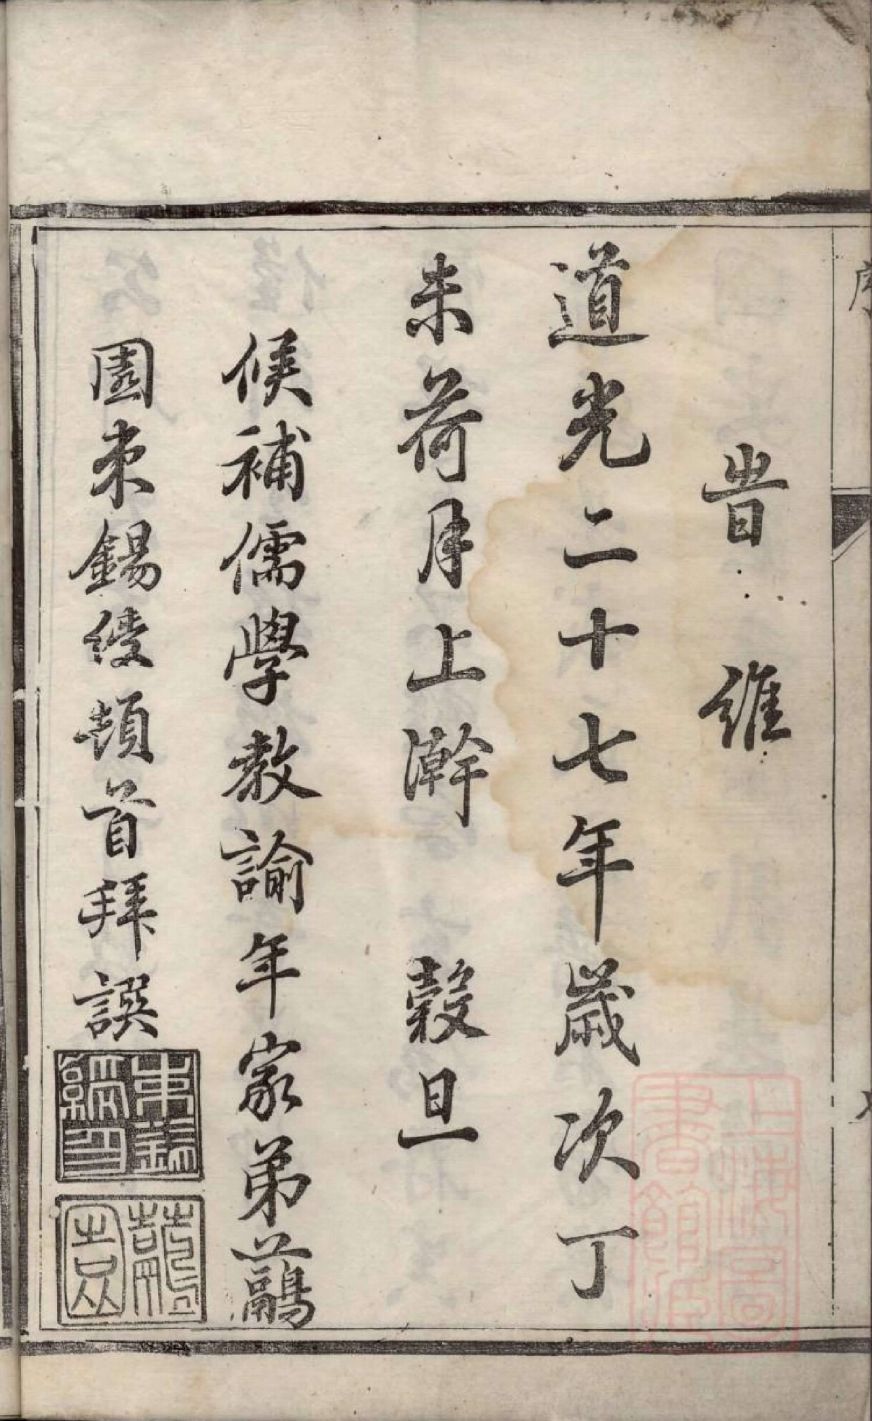 序
旹維
道光二十七年歲次丁
未荷月上澣 穀旦
候補儒學教諭年家弟鷊
園朱錫綬頓首拜譔
上海圖書館藏